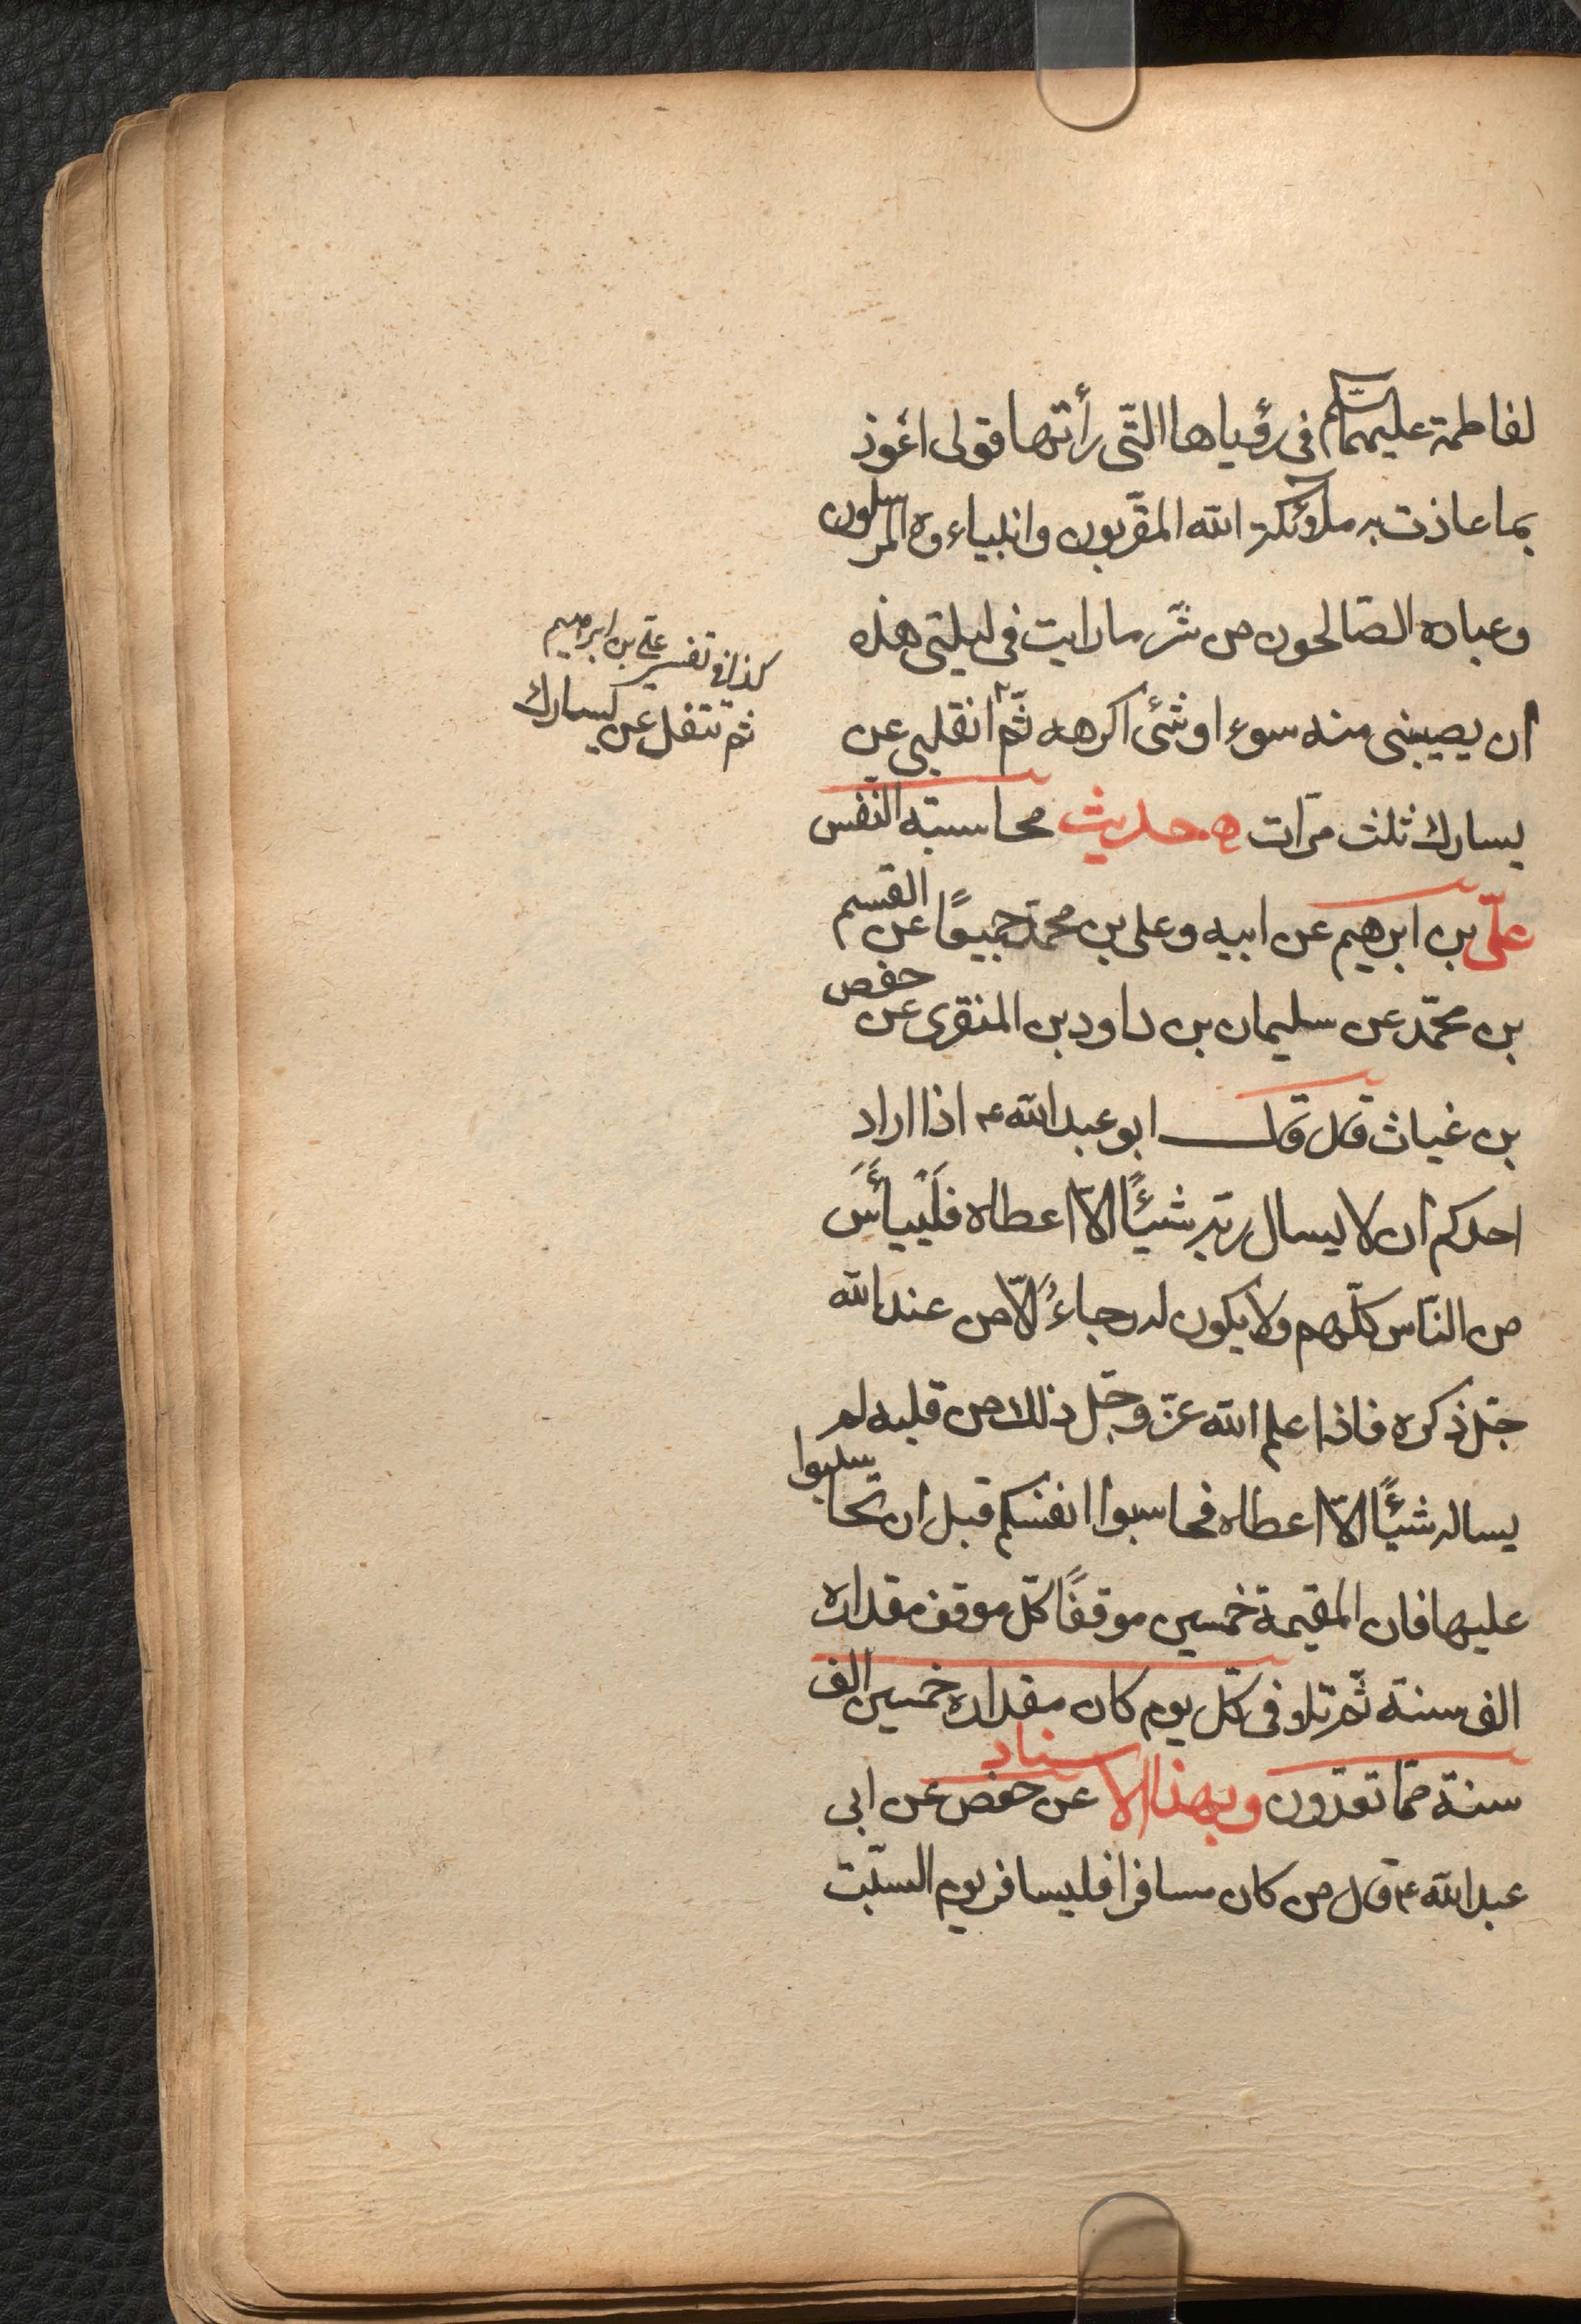 لفاطمة عليهما السّلم فى رؤياها التّى رأتها قولى اعوذ
بما عاذت به ملائكة الله المقرّبون وانبياءوه المرسلون
وعباده الصّالحون من شرّ ما رايت فى ليلتى هذه
ان يصيبنى منه سوء او شئ اكرهه ثمّ انقلبى عن
يسارك ثلث مرّات حديث محاسبته النّفس
علىّ بن ابرهيم عن ابيه وعلى بن محمّد جميعًا عن القسم
بن محمّد عن سليمان بن داود بن المنقرى عن حفص
بن غياث قال قال ابو عبد الله ع اذا اراد
احدكم ان لا يسال ربّه شيئًا الّا اعطاه فلْييأَسَ
من النّاس كلّهم ولا يكون له رجاءٌ الّا من عند الله
جلّ ذكره فاذا علم الله عزّ وجلّ ذلك من قلبه لم
يساله شيئًا الّا اعطاه فحاسبوا انفسكم قبل ان تحاسبوا
عليها فان للقيمة خمسين موقفًا كلّ موقف مقداره
الف سنة ثمّ تلا فى كلّ يوم كان مقداره خمسين الف
سنة ممّا تعدّون وبهذا الاسناد عن حفص عن ابى
عبد الله ع قال من كان مسافرا فليسافر يوم السّبت
كذا فى تفسير علىّ بن ابرهيم
ثم تتفل عن يسارك